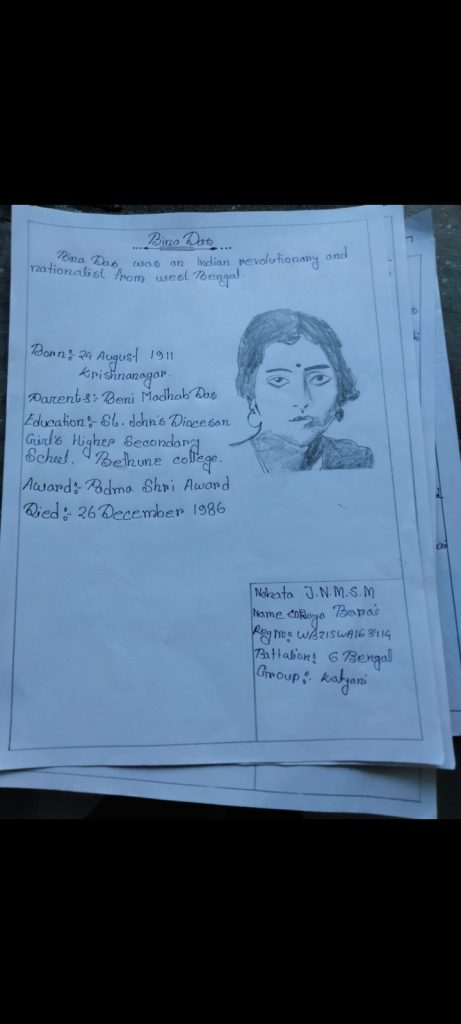 Bina Das
Bina Das was an Indian revolutionary and
nationalist from west Bengal.
Born:- 24 August 1911
Krishnanagar.
Parents:- Beni Madhab Das
Education:- St. John's Diocesan
Girl's Higher Secondary
School, Bethune college.
Award:- Padma Shri Award
Died:- 26 December 1986
J.N.M.S.M
Name Barai
Reg No:
Battalion: 6 Bengal
Group:- Kalyani